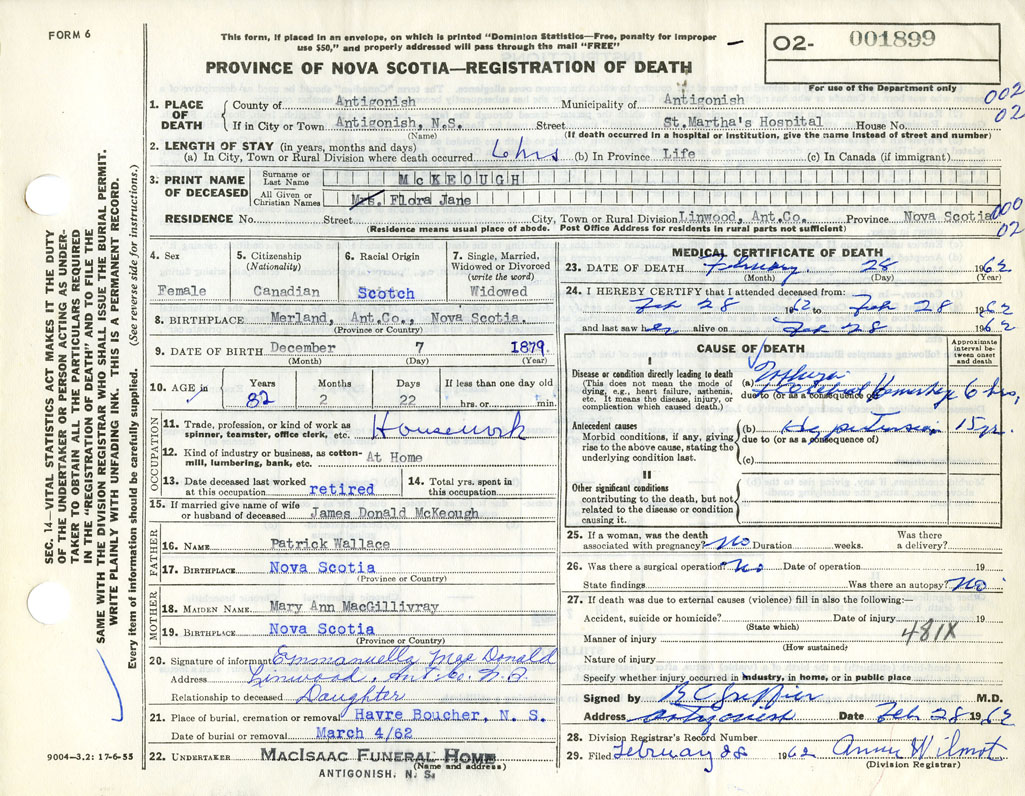 FORM 6
This form, if placed in an envelope, on which is printed "Dominion Statistics—Free, penalty for improper
use $50," and properly addressed will pass through the mail "FREE"
O2- 001899
PROVINCE OF NOVA SCOTIA—REGISTRATION OF DEATH
For use of the Department only
002
02
1. PLACE OF DEATH County of Antigonish Municipality of Antigonish
If in City or Town Antigonish, N.S. Street St.Martha's Hospital House No.
(Name) (If death occurred in a hospital or institution, give the name instead of street and number)
2. LENGTH OF STAY (in years, months and days)
(a) In City, Town or Rural Division where death occurred 6 hrs (b) In Province Life (c) In Canada (if immigrant)
3. PRINT NAME OF DECEASED Surname or Last Name McKEOUGH
All Given or Christian Names Mrs. Flora Jane
RESIDENCE No. Street City, Town or Rural Division Linwood, Ant.Co. Province Nova Scotia
(Residence means usual place of abode. Post Office Address for residents in rural parts not sufficient)
000
02
4. Sex Female
5. Citizenship (Nationality) Canadian
6. Racial Origin Scotch
7. Single, Married, Widowed or Divorced (write the word) Widowed
8. BIRTHPLACE Merland, Ant.Co., Nova Scotia.
(Province or Country)
9. DATE OF BIRTH December 7 1879
(Month) (Day) (Year)
10. AGE in Years Months Days If less than one day old
82 2 22 hrs. or min.
OCCUPATION
11. Trade, profession, or kind of work as
spinner, teamster, office clerk, etc. Housework
12. Kind of industry or business, as cotton-
mill, lumbering, bank, etc. At Home
13. Date deceased last worked
at this occupation retired
14. Total yrs. spent in
this occupation
15. If married give name of wife
or husband of deceased James Donald McKeough
FATHER
16. NAME Patrick Wallace
17. BIRTHPLACE Nova Scotia
(Province or Country)
MOTHER
18. MAIDEN NAME Mary Ann MacGillivray
19. BIRTHPLACE Nova Scotia
(Province or Country)
20. Signature of informant Emmanuella MacDonald
Address Linwood, Ant. Co. N.S.
Relationship to deceased Daughter
21. Place of burial, cremation or removal Havre Boucher, N. S.
Date of burial or removal March 4/62
22. UNDERTAKER MACISAAC FUNERAL HOME
(Name and address)
ANTIGONISH, N. S.
MEDICAL CERTIFICATE OF DEATH
23. DATE OF DEATH February 28 1962
(Month) (Day) (Year)
24. I HEREBY CERTIFY that I attended deceased from:
Feb 28 1962 to Feb 28 1962
and last saw her alive on Feb 28 1962
CAUSE OF DEATH
Approximate interval between onset and death
I
Disease or condition directly leading to death
(This does not mean the mode of
dying, e.g., heart failure, asthenia,
etc. It means the disease, injury, or
complication which caused death.)
(a)
due to (or as a consequence of) 6 hrs,
Antecedent causes
Morbid conditions, if any, giving
rise to the above cause, stating the
underlying condition last.
(b) Hypertension 15 yr.
due to (or as a consequence of)
(c)
II
Other significant conditions
contributing to the death, but not
related to the disease or condition
causing it.
25. If a woman, was the death Was there
associated with pregnancy? No Duration weeks. a delivery?
26. Was there a surgical operation? No Date of operation 19
State findings Was there an autopsy? No
27. If death was due to external causes (violence) fill in also the following:—
Accident, suicide or homicide? Date of injury 19
(State which)
481X
Manner of injury
(How sustained)
Nature of injury
Specify whether injury occurred in industry, in home, or in public place
Signed by M.D.
Address Antigonish Date Feb 28 1962
28. Division Registrar's Record Number
29. Filed February 28 1962 Annie Wilmot
(Division Registrar)
SEC. 14—VITAL STATISTICS ACT MAKES IT THE DUTY
OF THE UNDERTAKER OR PERSON ACTING AS UNDER-
TAKER TO OBTAIN ALL THE PARTICULARS REQUIRED
IN THE "REGISTRATION OF DEATH" AND TO FILE THE
SAME WITH THE DIVISION REGISTRAR WHO SHALL ISSUE THE BURIAL PERMIT.
WRITE PLAINLY WITH UNFADING INK. THIS IS A PERMANENT RECORD.
Every item of information should be carefully supplied. (See reverse side for instructions.)
9004—3.2: 17-6-55